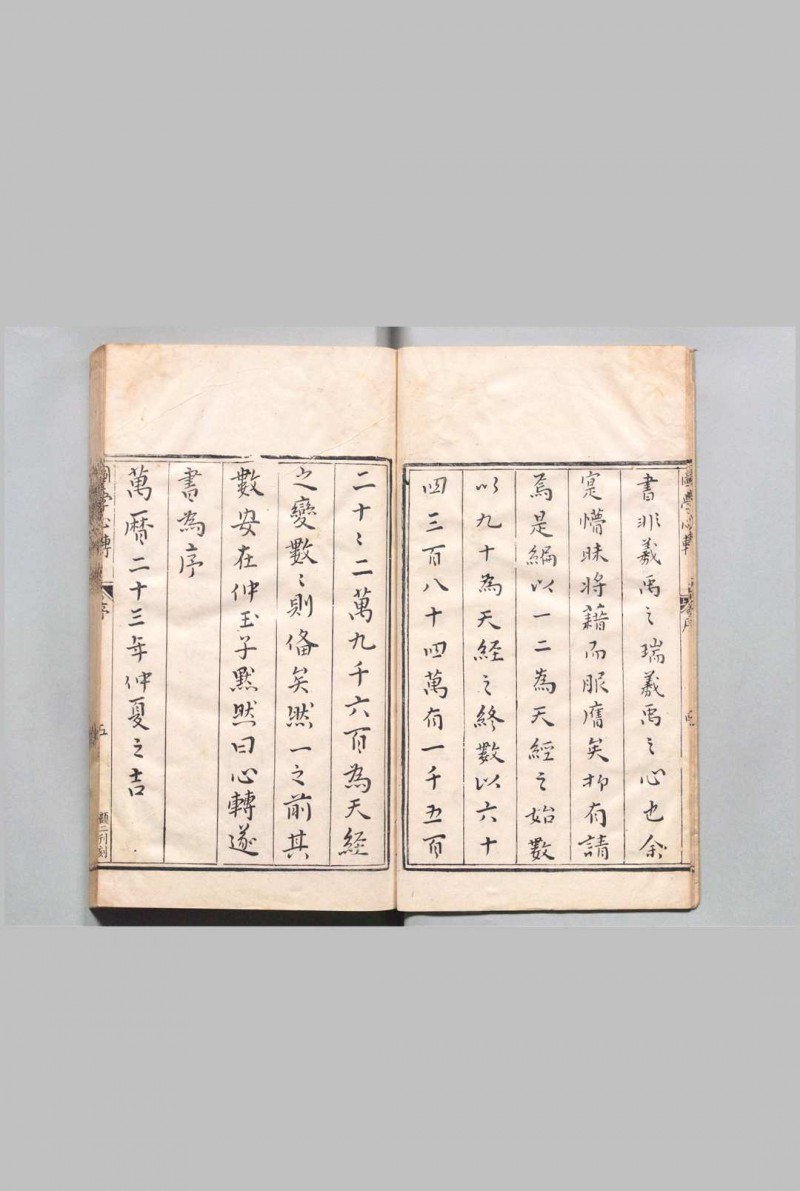 書非羲禹之瑞羲禹之心也余
寔懵昧將藉而服膺矣抑有請
焉是編以一二為天經之始數
以九十為天經之終數以六十
四三百八十四萬有一千五百
二十〻二萬九千六百為天經
之變數〻則備矣然一之前其
數安在仲玉子默然曰心轉遂
書為序
萬曆二十三年仲夏之吉
圖學心轉
序
五